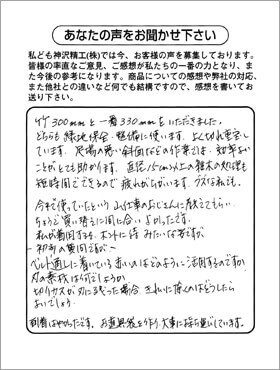 あなたの声をお聞かせ下さい
私ども神沢精工(株)では今、お客様の声を募集しております。
皆様の率直なご意見、ご感想が私たちの一番の力となり、ま
た今後の参考になります。商品についての感想や弊社の対応、
また他社との違いなど何でも結構ですので、感想を書いてお
送り下さい。
300mmと一番330mmをいただきました。
どちらも緑地保全、整備に使います。とても切れ重宝し
ています。足場の悪い斜面などの作業では、効率よい
ことがとても助かります。直径15cm以上の雑木の処理も
短時間でできるので疲れがちがいます。クズな私。
今まで使っていたという山仕事のおじさんに教えてもらい、
ちょうど買い替えに間に合いよかったです。
私が着用すると、ホントに侍みたいな姿ですが
ー初歩の質問ですがー
ベルト通しに着いている赤いのはどのように活用するのですか
刃の素材は何でしょうか
切りカスが刃に残った場合きれいに除くのはどうしたら
よいでしょう。
到着はやかったです。お道具袋を作り、大事に持ち運びしています。